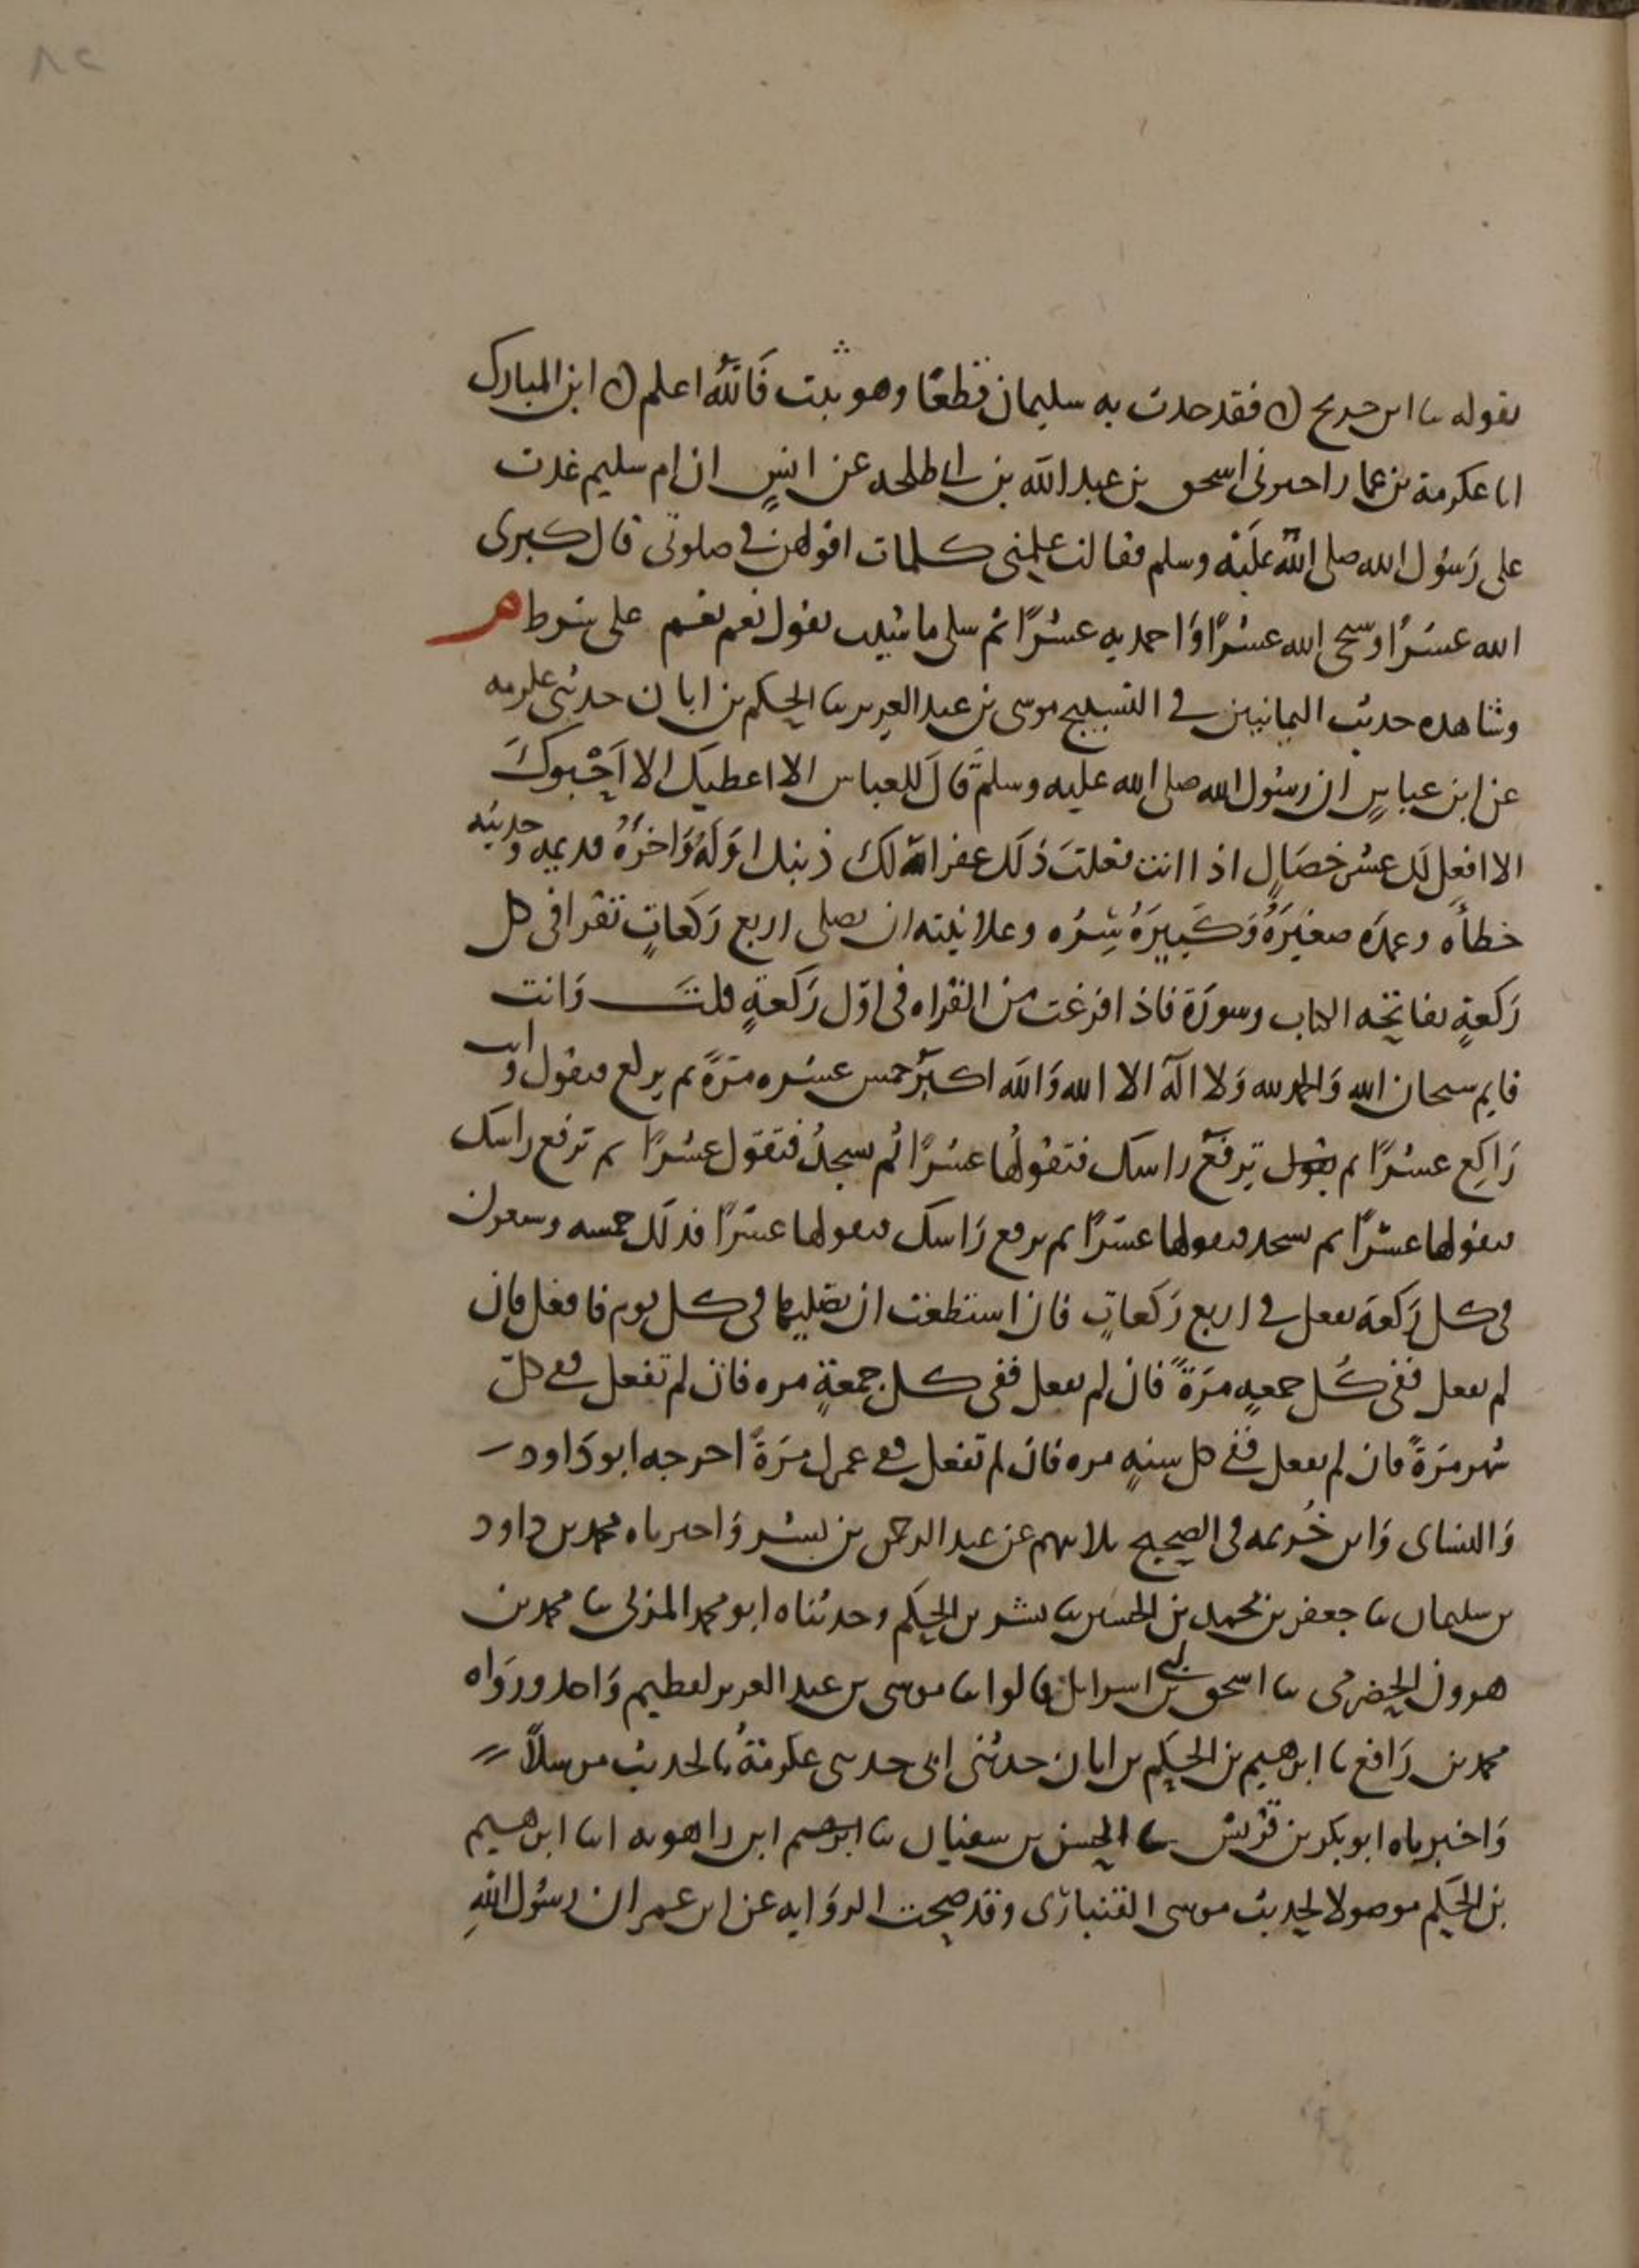 ٨٢
بقوله ثنا ابن جريج ن فقد حدث به سليمان قطعًا وهو ثبت فَاللّٰه اعلم ن ابن المبارك
انا عكرمة بن عمار اخبرنى اسحق بن عبد الله بن ابى طلحه عن انسٍ ان ام سليم غدت
على رَسُول الله صلى الله عَليْه وسلم فقالت علمنى كلمات اقولهن فى صلوتى قال كبرى
الله عشرًا وسبحى الله عشرًا وَاحمديه عشرًا ثم سلى ما شيت يقول نعم نعم على شرط م
وشاهده حديث اليمانيين فى التسبيح موسى بن عبد العزيز ثنا الحكم بن ابان حدثنى عكرمه
عن ابن عباسٍ ان رسُول الله صلى الله عليه وسلم قَالَ للعباس الا اعطيك الا اَحْبوكَ
الا افعل لَك عشر خصَالٍ اذا انت فعلتَ ذَلَك غفر الله لَكَ ذنبك اوَّلَهُ وَاخرَهُ قديمه وحديثه
خطأه وعمدَه صغيَرَهُ وَكَبيرَهُ سِرَّه وعلانيته ان تصلى اربع رَكَعاتٍ تقرا فى كل
رَكعةٍ بفاتحه الكتاب وسورَة فاذا فرغت من القراه فى اوّل رَكعةٍ قلتَ وَانت
قايم سبحان الله وَالحمد لله وَلا الَه الا الله وَالله اكبَر خمس عشره مرَةً ثم يركع فتقول وانت
رَاكِع عشرًا ثم تقول ترفَع راسك فتقولُها عشرًا ثم تسجدُ فتقول عشرًا ثم ترفع راسك
فتقولها عشرًا ثم تسجد فتقولها عشرًا ثم ترفع رَاسك فتقولها عشرًا فذلَك خمسه وسبعون
فى كل رَكعَة تفعل فى اربع رَكَعاتٍ فان استطعت ان تصليها فى كل يوم فافعل فان
لم تفعل ففى كُل جمعهٍ مرَةً فان لم تفعل ففى كل جمعةٍ مره فان لم تفعل ففى كلّ
شهر مرَةً فان لم تفعل ففى كل سنهٍ مره فان لم تفعل ففى عمرك مرَةً اخرجه ابو دَاود
وَالنساى وَابن خُزيمه فى الصحيح ثلاثتهم عن عبد الرحمن بن بشر وَاخبرناه محمد بن داود
بن سليمان ثنا جعفر بن محمد بن الحسين ثنا بشر بن الحكم وحدثناه ابو محمد المزنى ثنا محمد بن
هرون الحضرمى ثنا اسحق بن ابى اسرايل قالوا ثنا موسى بن عبد العزيز لعظيم وَاحد ورواه
محمد بن رَافع ثنا ابرهيم بن الحكم بن ابان حدثنى ابى حدثنى عكرمةُ بالحديث مرسلًا
وَاخبرناه ابو بكر بن قريش ثنا الحسن بن سفيان ثنا ابرهيم ابن راهويه انا ابرهيم
بن الحكم موصولا لحديث موسى القنبارى وقد صحت الروَايه عن ابن عمر ان رسُول اللهِ